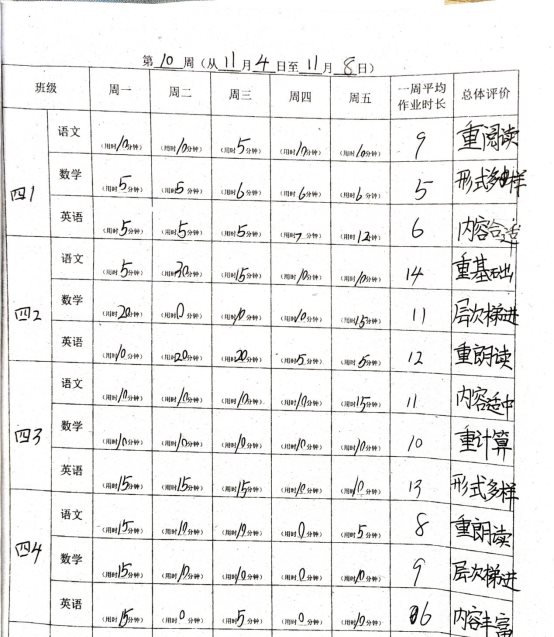 第 10 周（从 11 月 4 日至 11 月 8 日）
班级 周一 周二 周三 周四 周五 一周平均作业时长 总体评价
四1 语文 （用时10分钟） （用时10分钟） （用时5分钟） （用时10分钟） （用时10分钟） 9 重阅读
数学 （用时5分钟） （用时5分钟） （用时6分钟） （用时6分钟） （用时6分钟） 5 形式多样
英语 （用时5分钟） （用时5分钟） （用时5分钟） （用时7分钟） （用时12分钟） 6 内容合适
四2 语文 （用时5分钟） （用时30分钟） （用时15分钟） （用时10分钟） （用时10分钟） 14 重基础
数学 （用时20分钟） （用时0分钟） （用时10分钟） （用时10分钟） （用时15分钟） 11 层次梯进
英语 （用时10分钟） （用时20分钟） （用时20分钟） （用时5分钟） （用时5分钟） 12 重朗读
四3 语文 （用时10分钟） （用时10分钟） （用时10分钟） （用时10分钟） （用时15分钟） 11 内容适中
数学 （用时10分钟） （用时10分钟） （用时10分钟） （用时10分钟） （用时10分钟） 10 重计算
英语 （用时15分钟） （用时15分钟） （用时15分钟） （用时10分钟） （用时10分钟） 13 形式多样
四4 语文 （用时15分钟） （用时10分钟） （用时10分钟） （用时0分钟） （用时5分钟） 8 重朗读
数学 （用时15分钟） （用时10分钟） （用时10分钟） （用时0分钟） （用时10分钟） 9 层次梯进
英语 （用时15分钟） （用时0分钟） （用时5分钟） （用时0分钟） （用时10分钟） 6 内容丰富